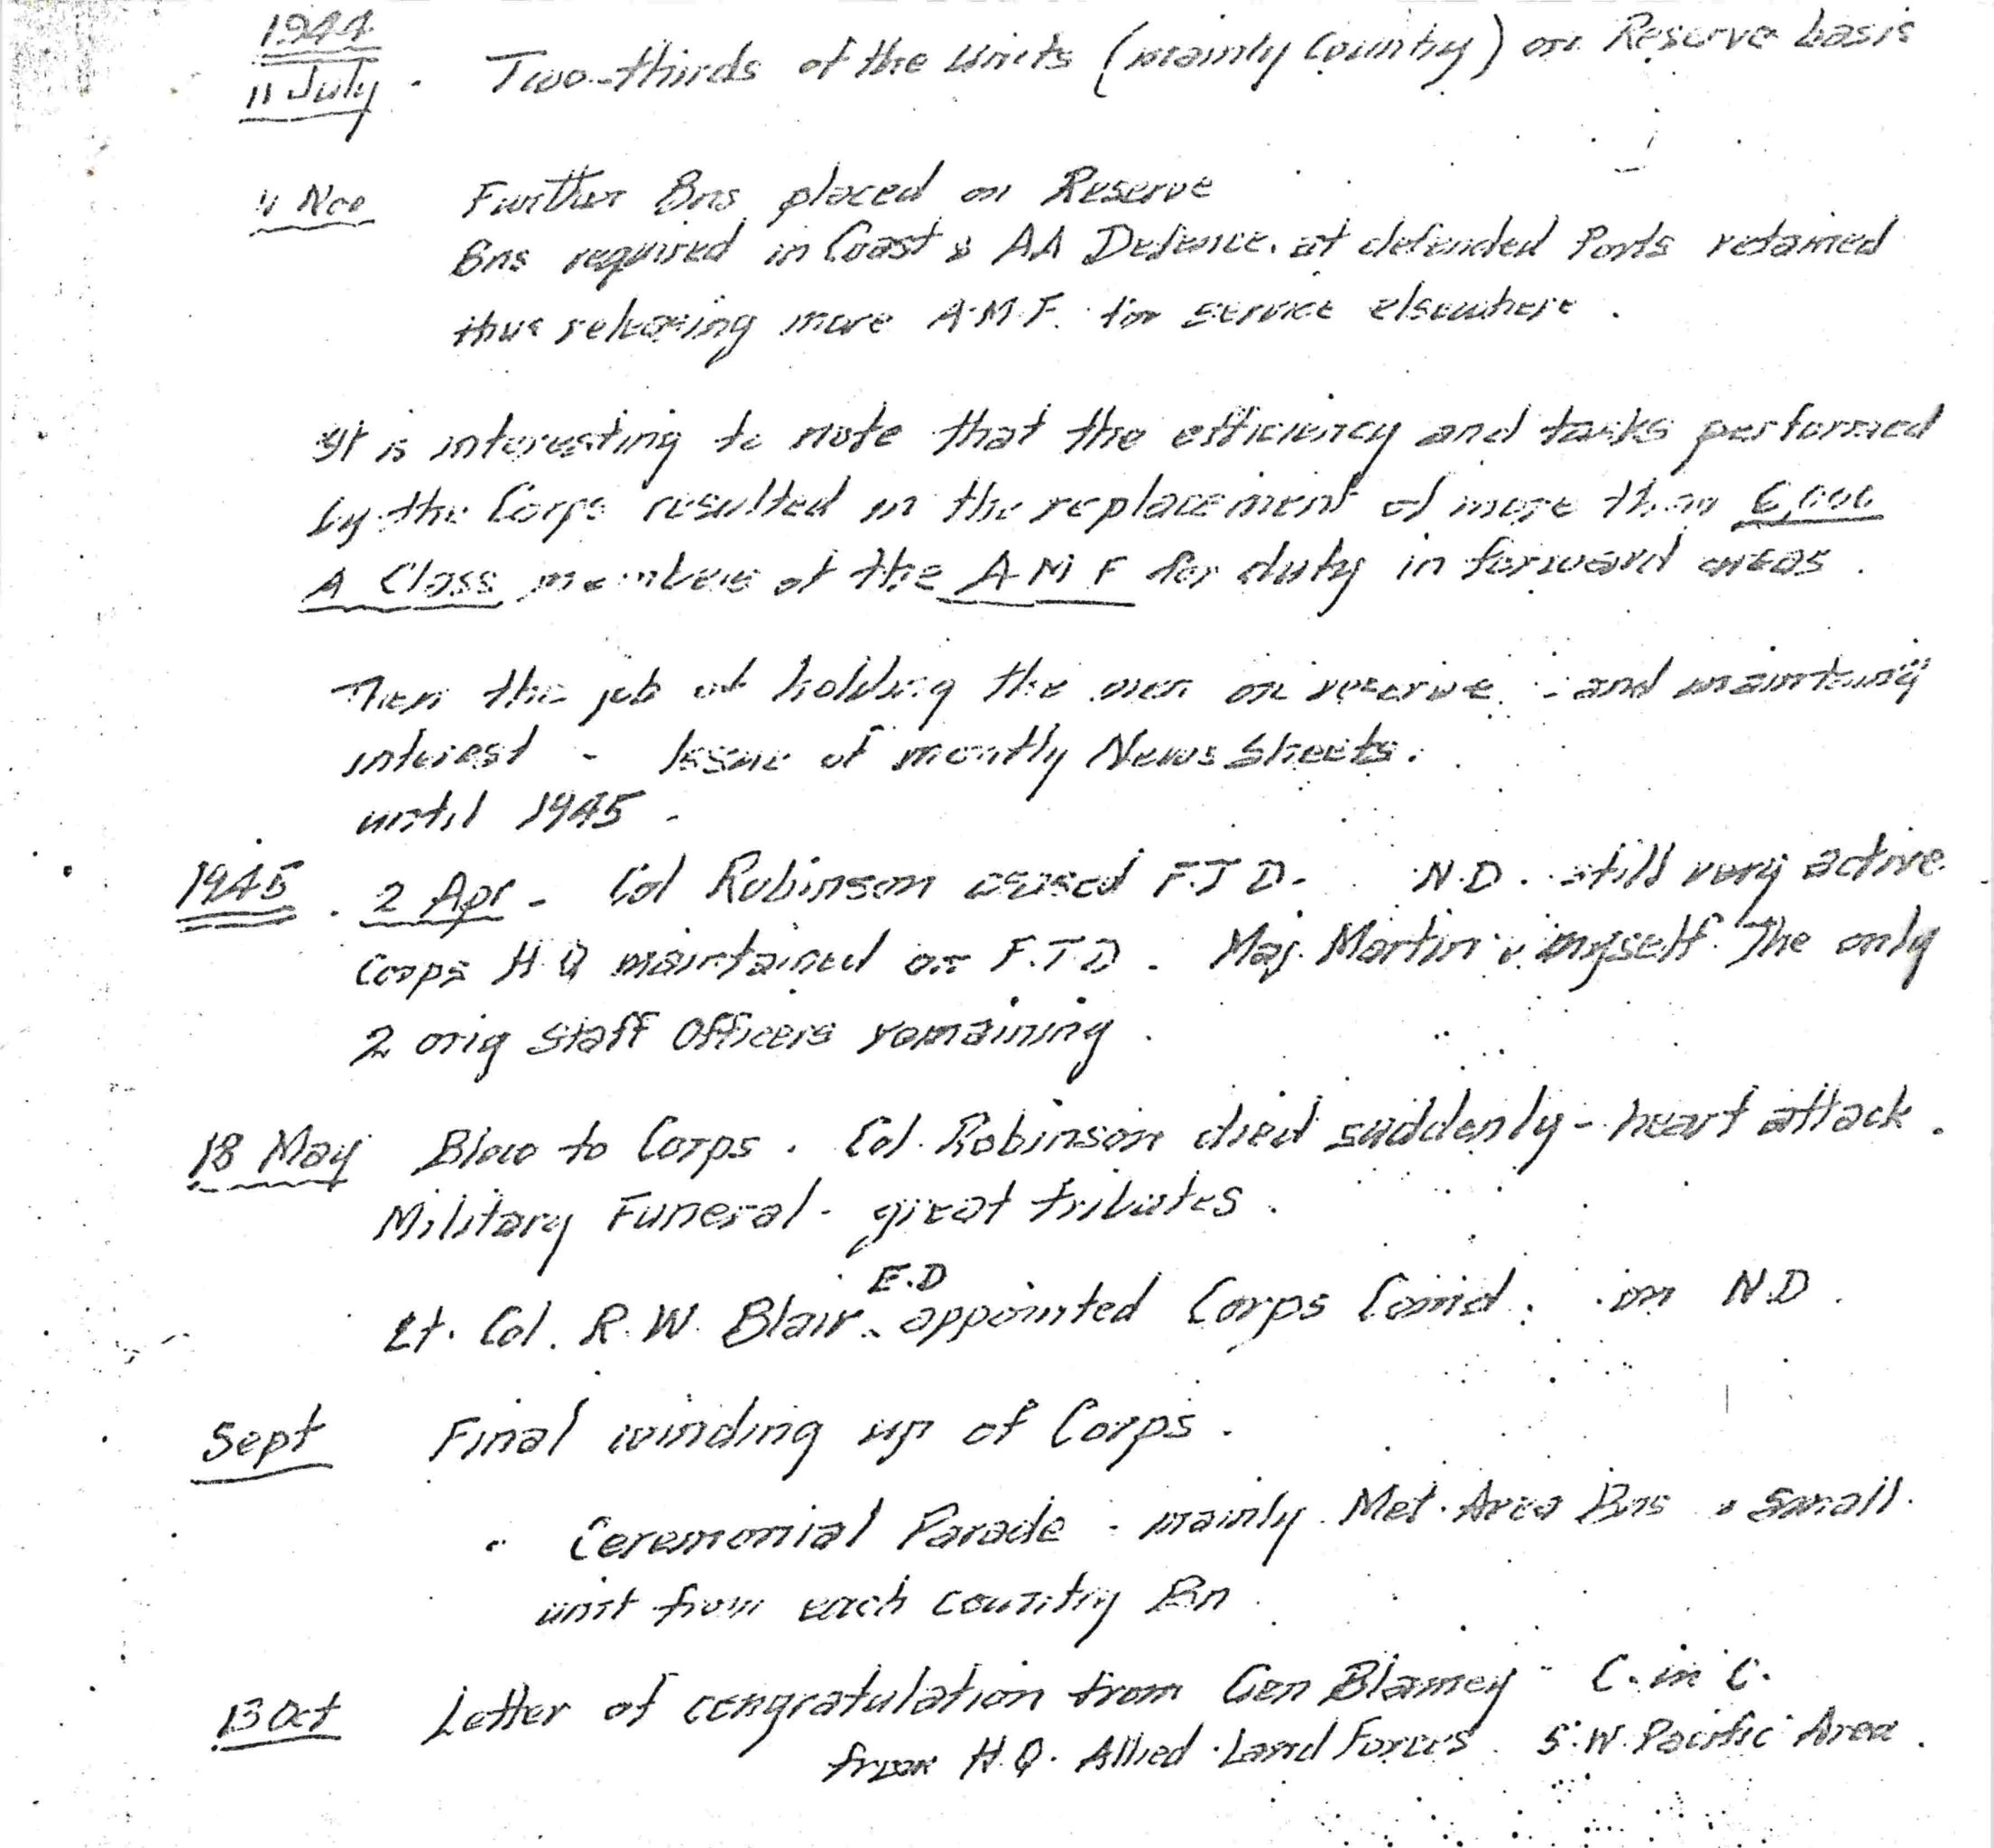 1944
11 July. Two-thirds of the Units (mainly Country) on Reserve basis
Nov Further Bns placed on Reserve
Bns required in Coast & AA Defence. at defended Ports retained
thus releasing more A.M.F. for service elsewhere.
It is interesting to note that the efficiency and tasks performed
by the Corps resulted in the replacement of more than 6,000
A Class members of the A M F for duty in forward areas.
Then the job of holding the men on reserve - and maintaing
interest - Issue of montly News Sheets.
until 1945.
1945. 2 Apr - Col Robinson ceased F.T.D. N.D. still very active
Corps H.Q maintained on F.T.D. Maj. Martin & myself. The only
2 orig staff Officers remaining.
18 May Blow to Corps. Col. Robinson died suddenly - heart attack.
Military Funeral - great tributes.
E.D
Lt. Col. R. W. Blair. appointed Corps Comd. on N.D.
Sept Final winding up of Corps.
" Ceremonial Parade - mainly Met. Area Bns & small
unit from each country Bn
13 Oct Letter of congratulation from Gen Blamey - C. in C.
from H.Q. Allied Land Forces S.W. Pacific Area.